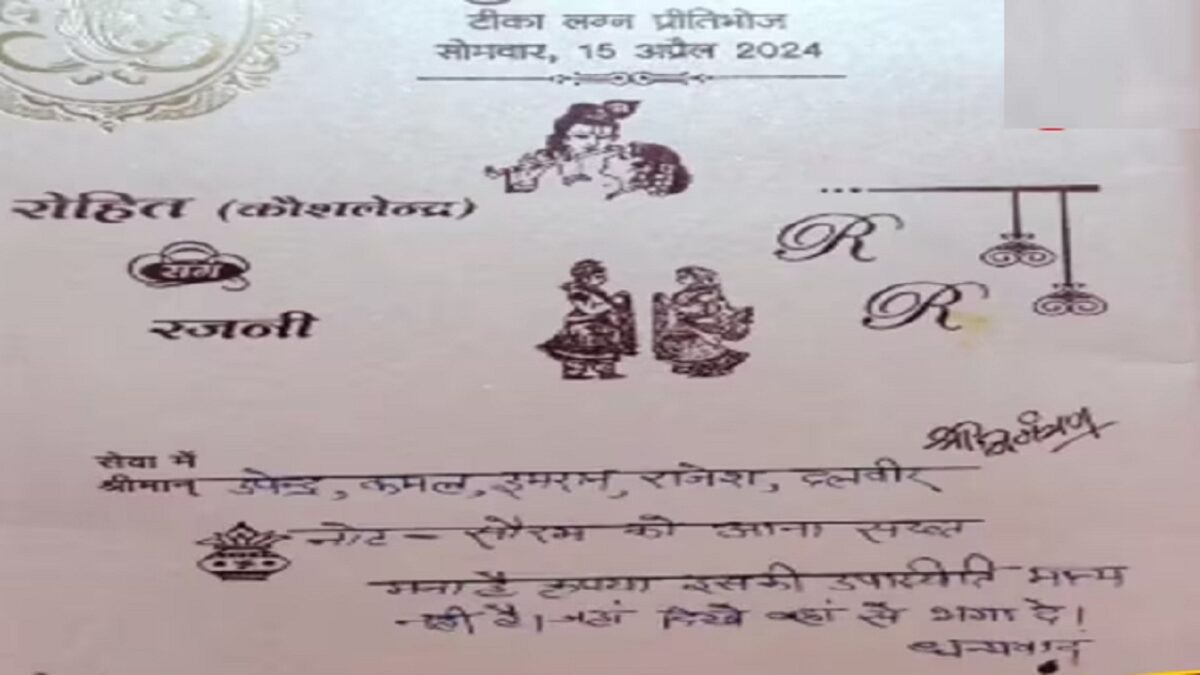 टीका लग्न प्रीतिभोज
सोमवार, 15 अप्रैल 2024
रोहित (कौशलेन्द्र)
संग
रजनी
R
R
श्री निमंत्रण
सेवा में
श्रीमान् उपेन्द्र, कमल, इमरान, राजेश, दलवीर
नोट - सौरभ को आना सख्त
मना है कृपया इसकी उपास्थिति मान्य
नहीं है। जहां दिखे वहां से भगा दे।
धन्यवाद